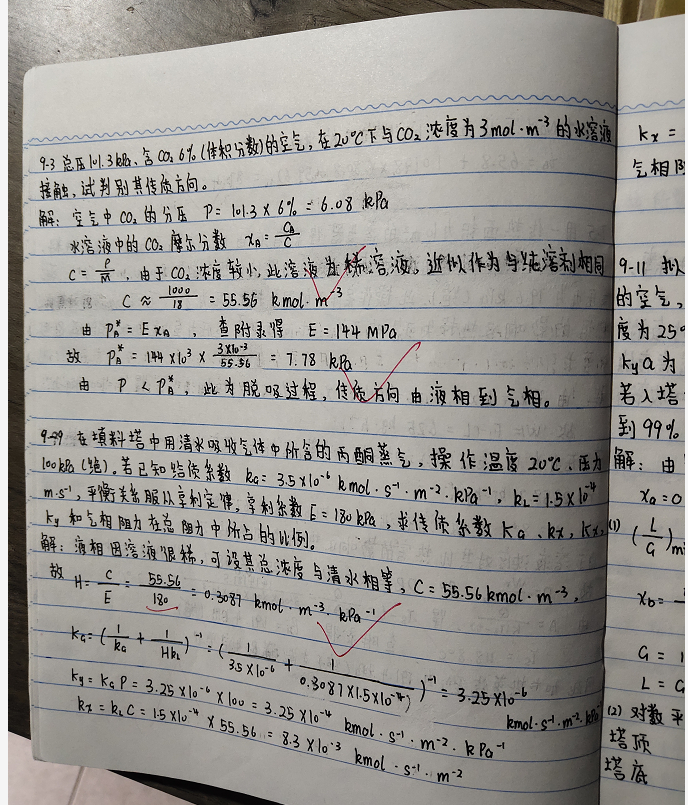 9-3 总压101.3kPa、含CO₂ 6%(体积分数)的空气,在20℃下与CO₂浓度为3mol·m⁻³的水溶液
接触,试判别其传质方向。
解:空气中CO₂的分压 P=101.3×6%=6.08 kPa
水溶液中的CO₂摩尔分数 xₐ=Cₐ/C
C=ρ/M,由于CO₂浓度较小,此溶液为稀溶液,近似作为与纯溶剂相同
C≈1000/18=55.56 kmol·m⁻³
由 Pₐ*=Exₐ,查附录得 E=144MPa
故 Pₐ*=144×10³×3×10⁻³/55.56=7.78 kPa
由 P<Pₐ*,此为脱吸过程,传质方向由液相到气相。
在填料塔中用清水吸收气体中所含的丙酮蒸气,操作温度20℃、压力
100kPa(绝)。若已知给质系数 kG=3.5×10⁻⁶ kmol·s⁻¹·m⁻²·kPa⁻¹,kL=1.5×10⁻⁴
m·s⁻¹,平衡关系服从亨利定律,亨利系数E=180kPa,求传质系数KG、kx,Kx,
Ky和气相阻力在总阻力中所占的比例。
解:液相因溶液很稀,可设其总浓度与清水相等,C=55.56kmol·m⁻³,
故 H=C/E=55.56/180=0.3087 kmol·m⁻³·kPa⁻¹
KG=(1/kG+1/HkL)⁻¹=(1/3.5×10⁻⁶+1/0.3087×1.5×10⁻⁴)⁻¹=3.25×10⁻⁶
kmol·s⁻¹·m⁻²·kPa⁻¹
Ky=KGP=3.25×10⁻⁶×100=3.25×10⁻⁴ kmol·s⁻¹·m⁻²·kPa⁻¹
kx=kLC=1.5×10⁻⁴×55.56=8.3×10⁻³ kmol·s⁻¹·m⁻²
Kx=
气相阻
9-11 拟
的空气,
度为25
Kya为
若入塔
到99%
解:由
xa=0
(1) (L/G)m
xb=
G=1
L=G
(2) 对数平
塔顶
塔底